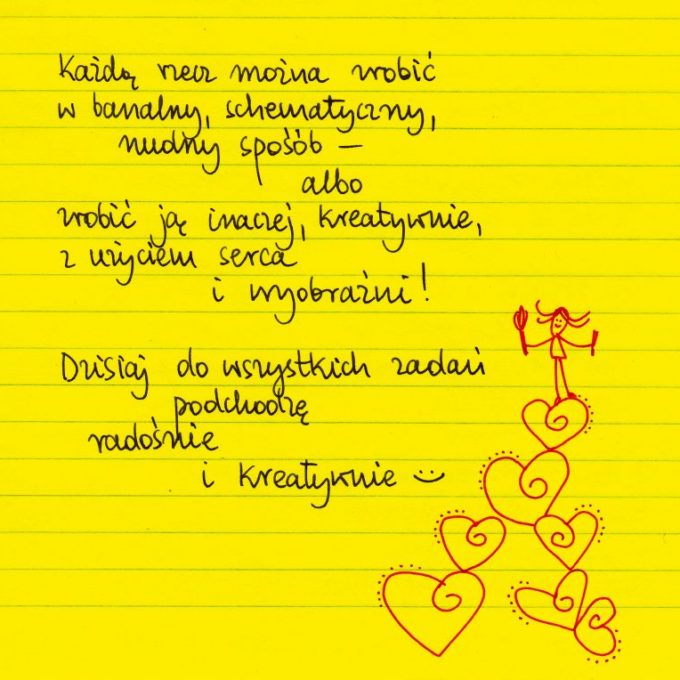 Każdą rzecz można zrobić
w banalny, schematyczny,
nudny sposób –
albo
zrobić ją inaczej, kreatywnie,
z użyciem serca
i wyobraźni!
Dzisiaj do wszystkich zadań
podchodzę
radośnie
i kreatywnie :)